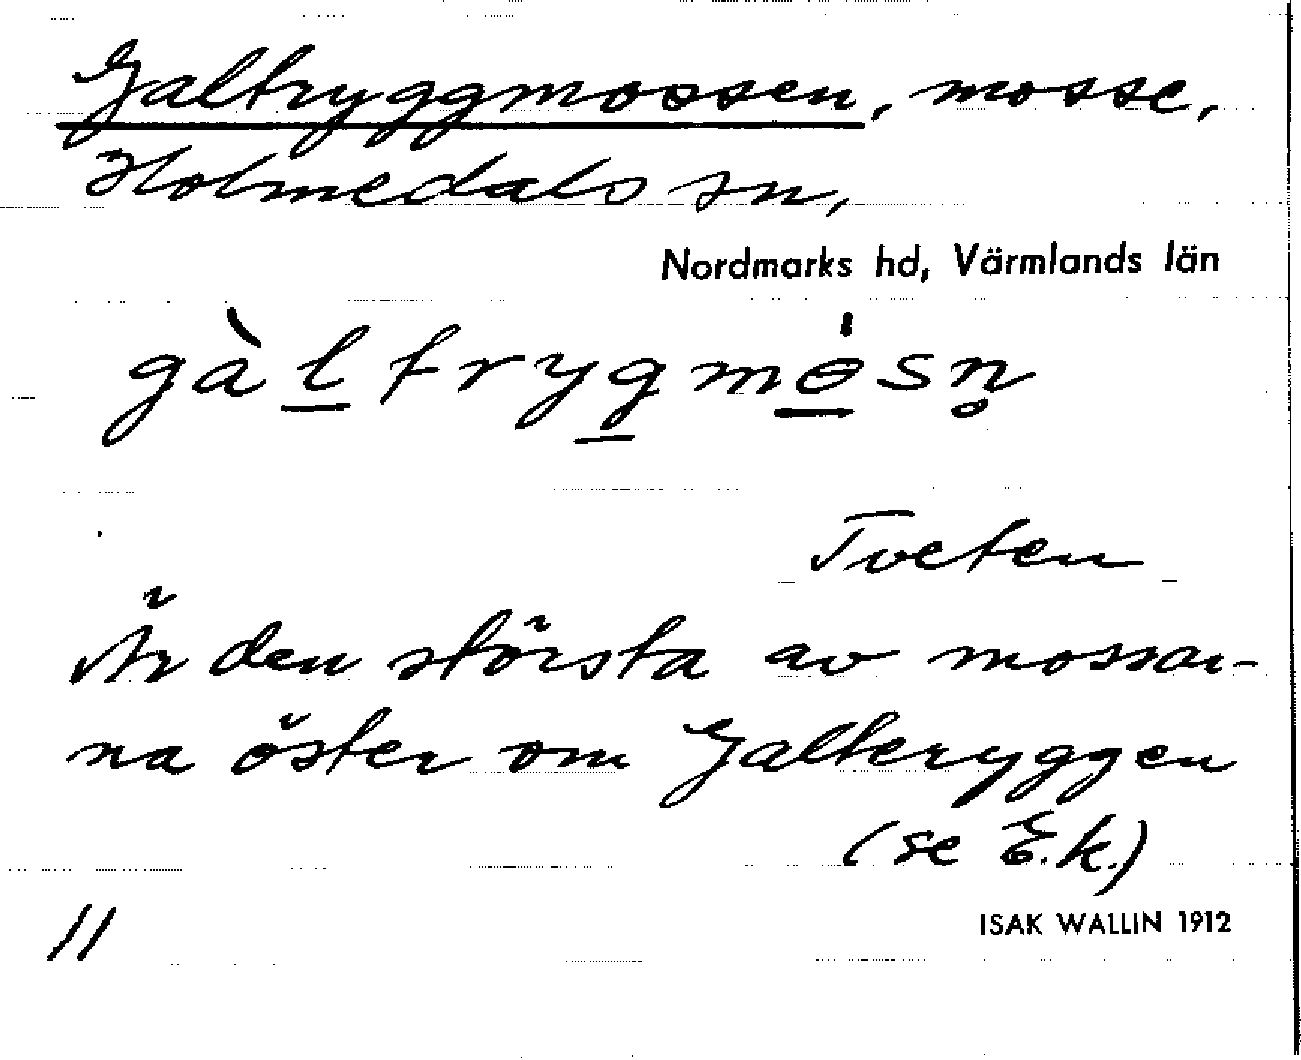 Galtryggmossen, mosse,
Holmedals sn,
Nordmarks hd, Värmlands län
gàl̲tryg̲mɵ̲́sn̥
Tveten
Är den största av mossar-
na öster om Galteryggen
(se E.k.)
11
ISAK WALLIN 1912